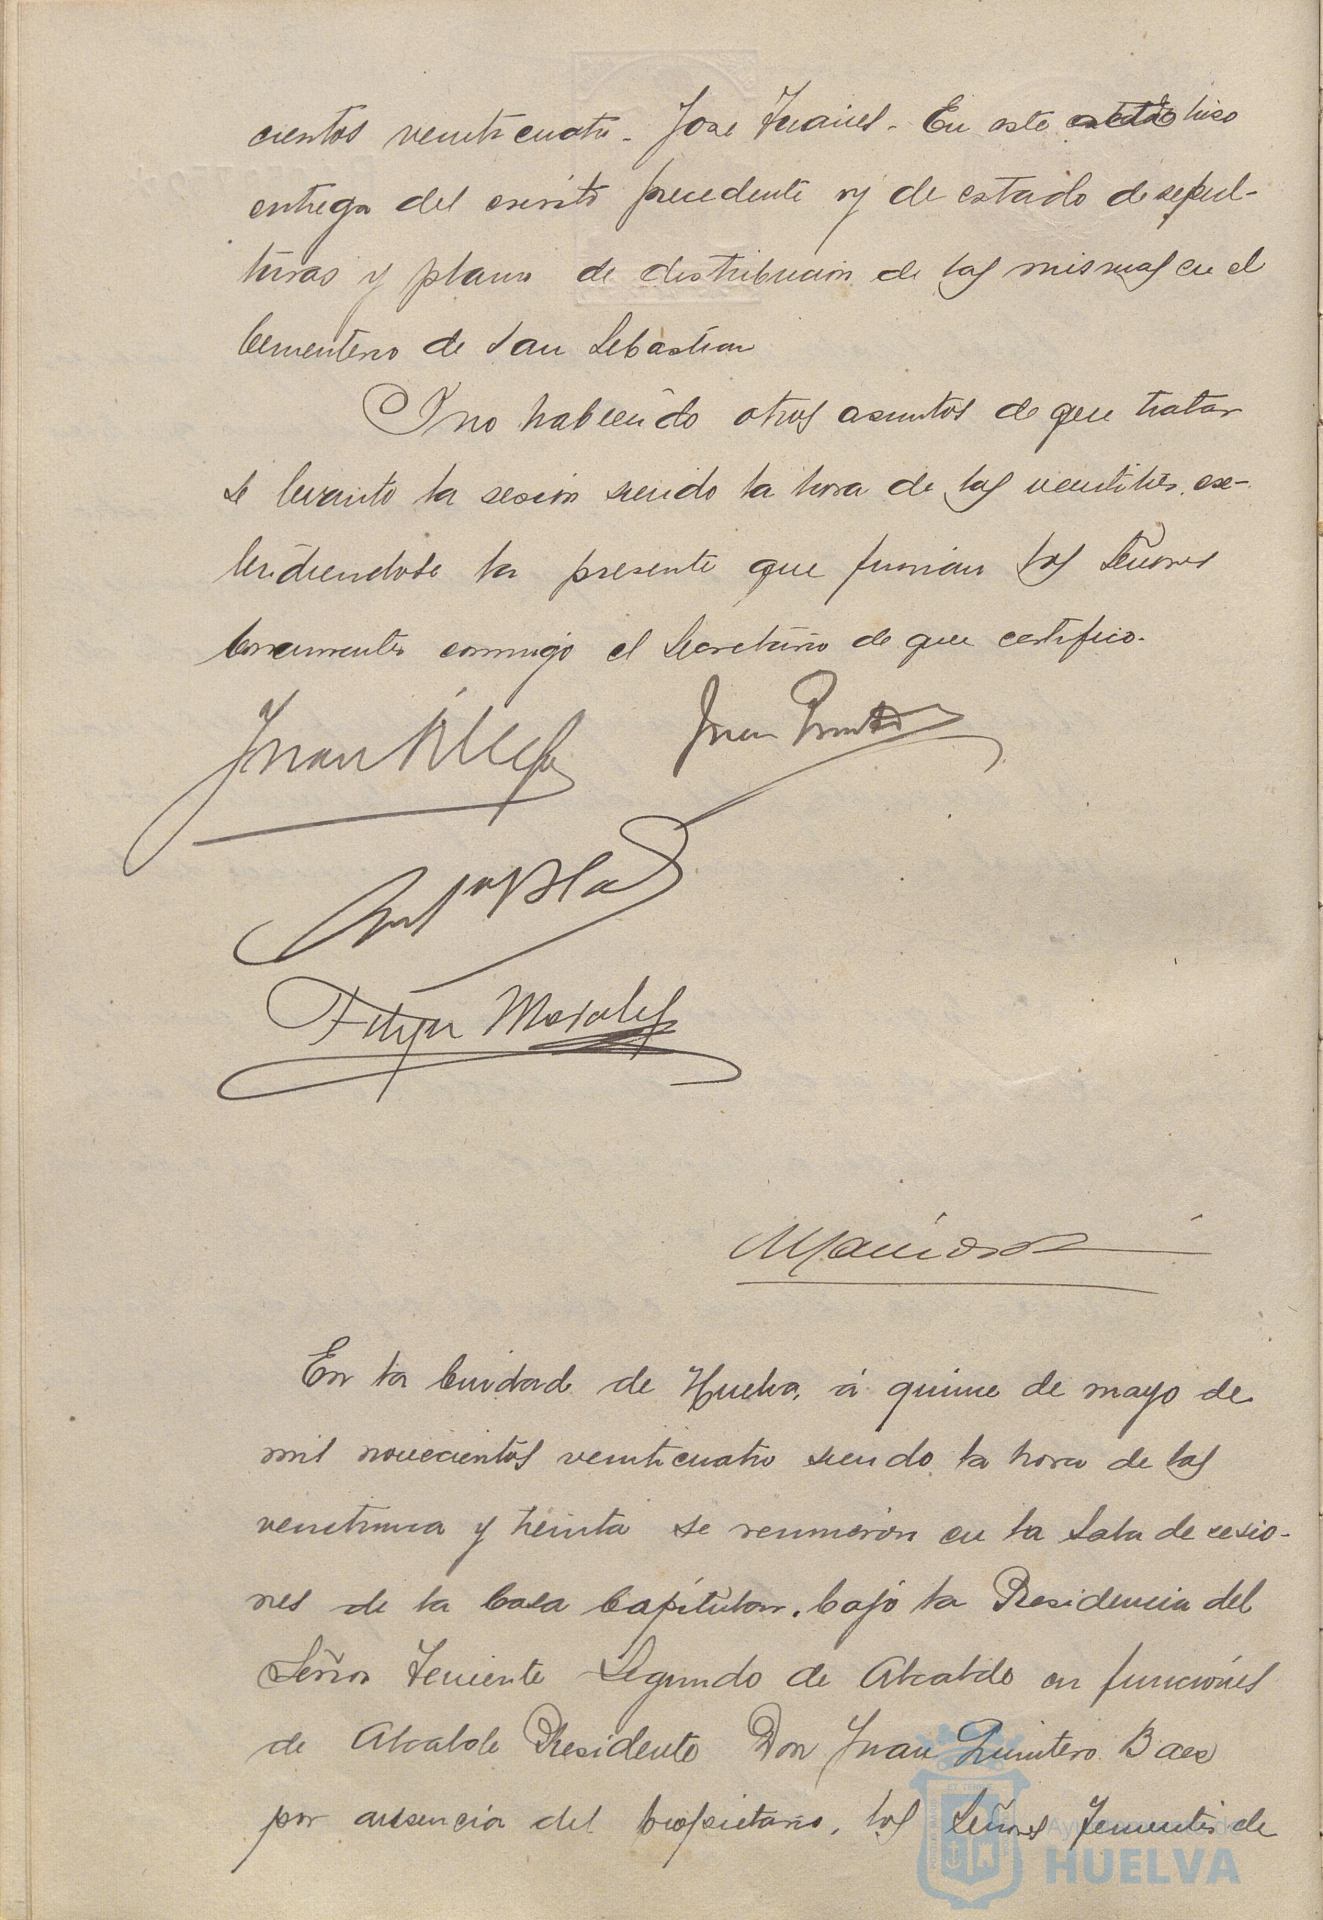 cientos veinticuatro. José Juanes. En este estado hizo
entrega del escrito precedente y de estado de sepul-
turas y plano de distribución de las mismas en el
Cementerio de San Sebastian
Y no habiendo otros asuntos de que tratar
se levantó la sesión siendo la hora de las veintitrés, ex-
tendiendose la presente que firman los Señores
Concurrentes conmigo el Secretario de que certifico.
Juan
Juan Quintero
Felipe Morales
En la Ciudad de Huelva, á quince de mayo de
mil novecientos veinticuatro siendo la hora de las
veintiuna y treinta se reunieron en la Sala de sesio-
nes de la Casa Capitular, bajo la Presidencia del
Señor Teniente Segundo de Alcalde en funciones
de Alcalde Presidente Don Juan Quintero Baez
por ausencia del propietario, los Señores Tenientes de
HUELVA